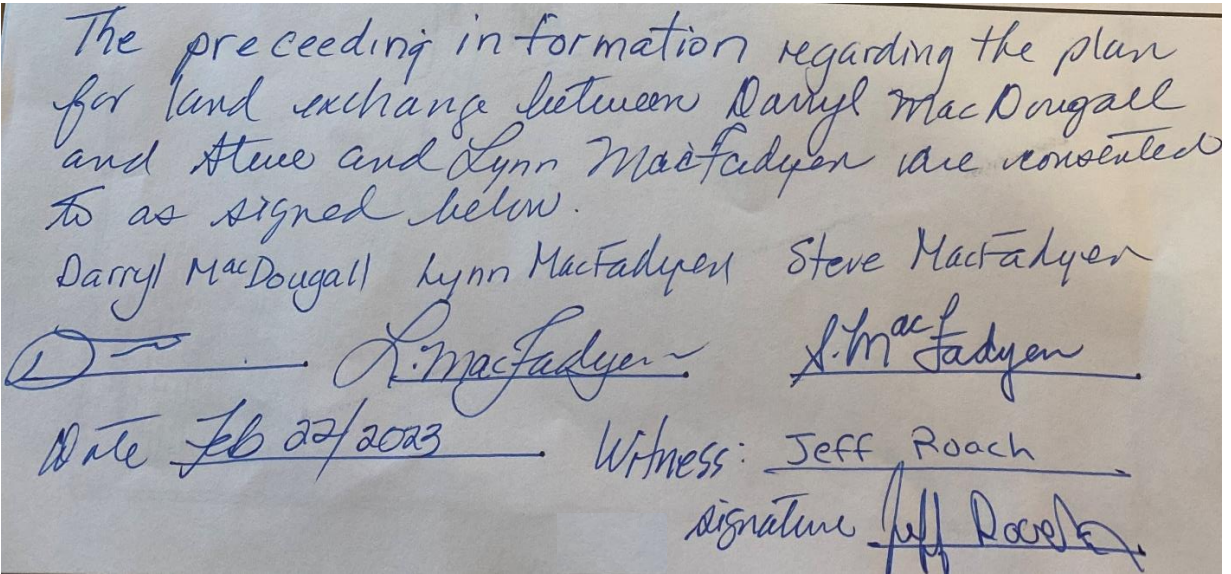 The preceeding information regarding the plan
for land exchange between Darryl MacDougall
and Steve and Lynn MacFadyen are consented
to as signed below.
Darryl MacDougall Lynn MacFadyen Steve MacFadyen
L. MacFadyen S. MacFadyen
Date Feb 22/2023 Witness: Jeff Roach
signature Jeff Roach